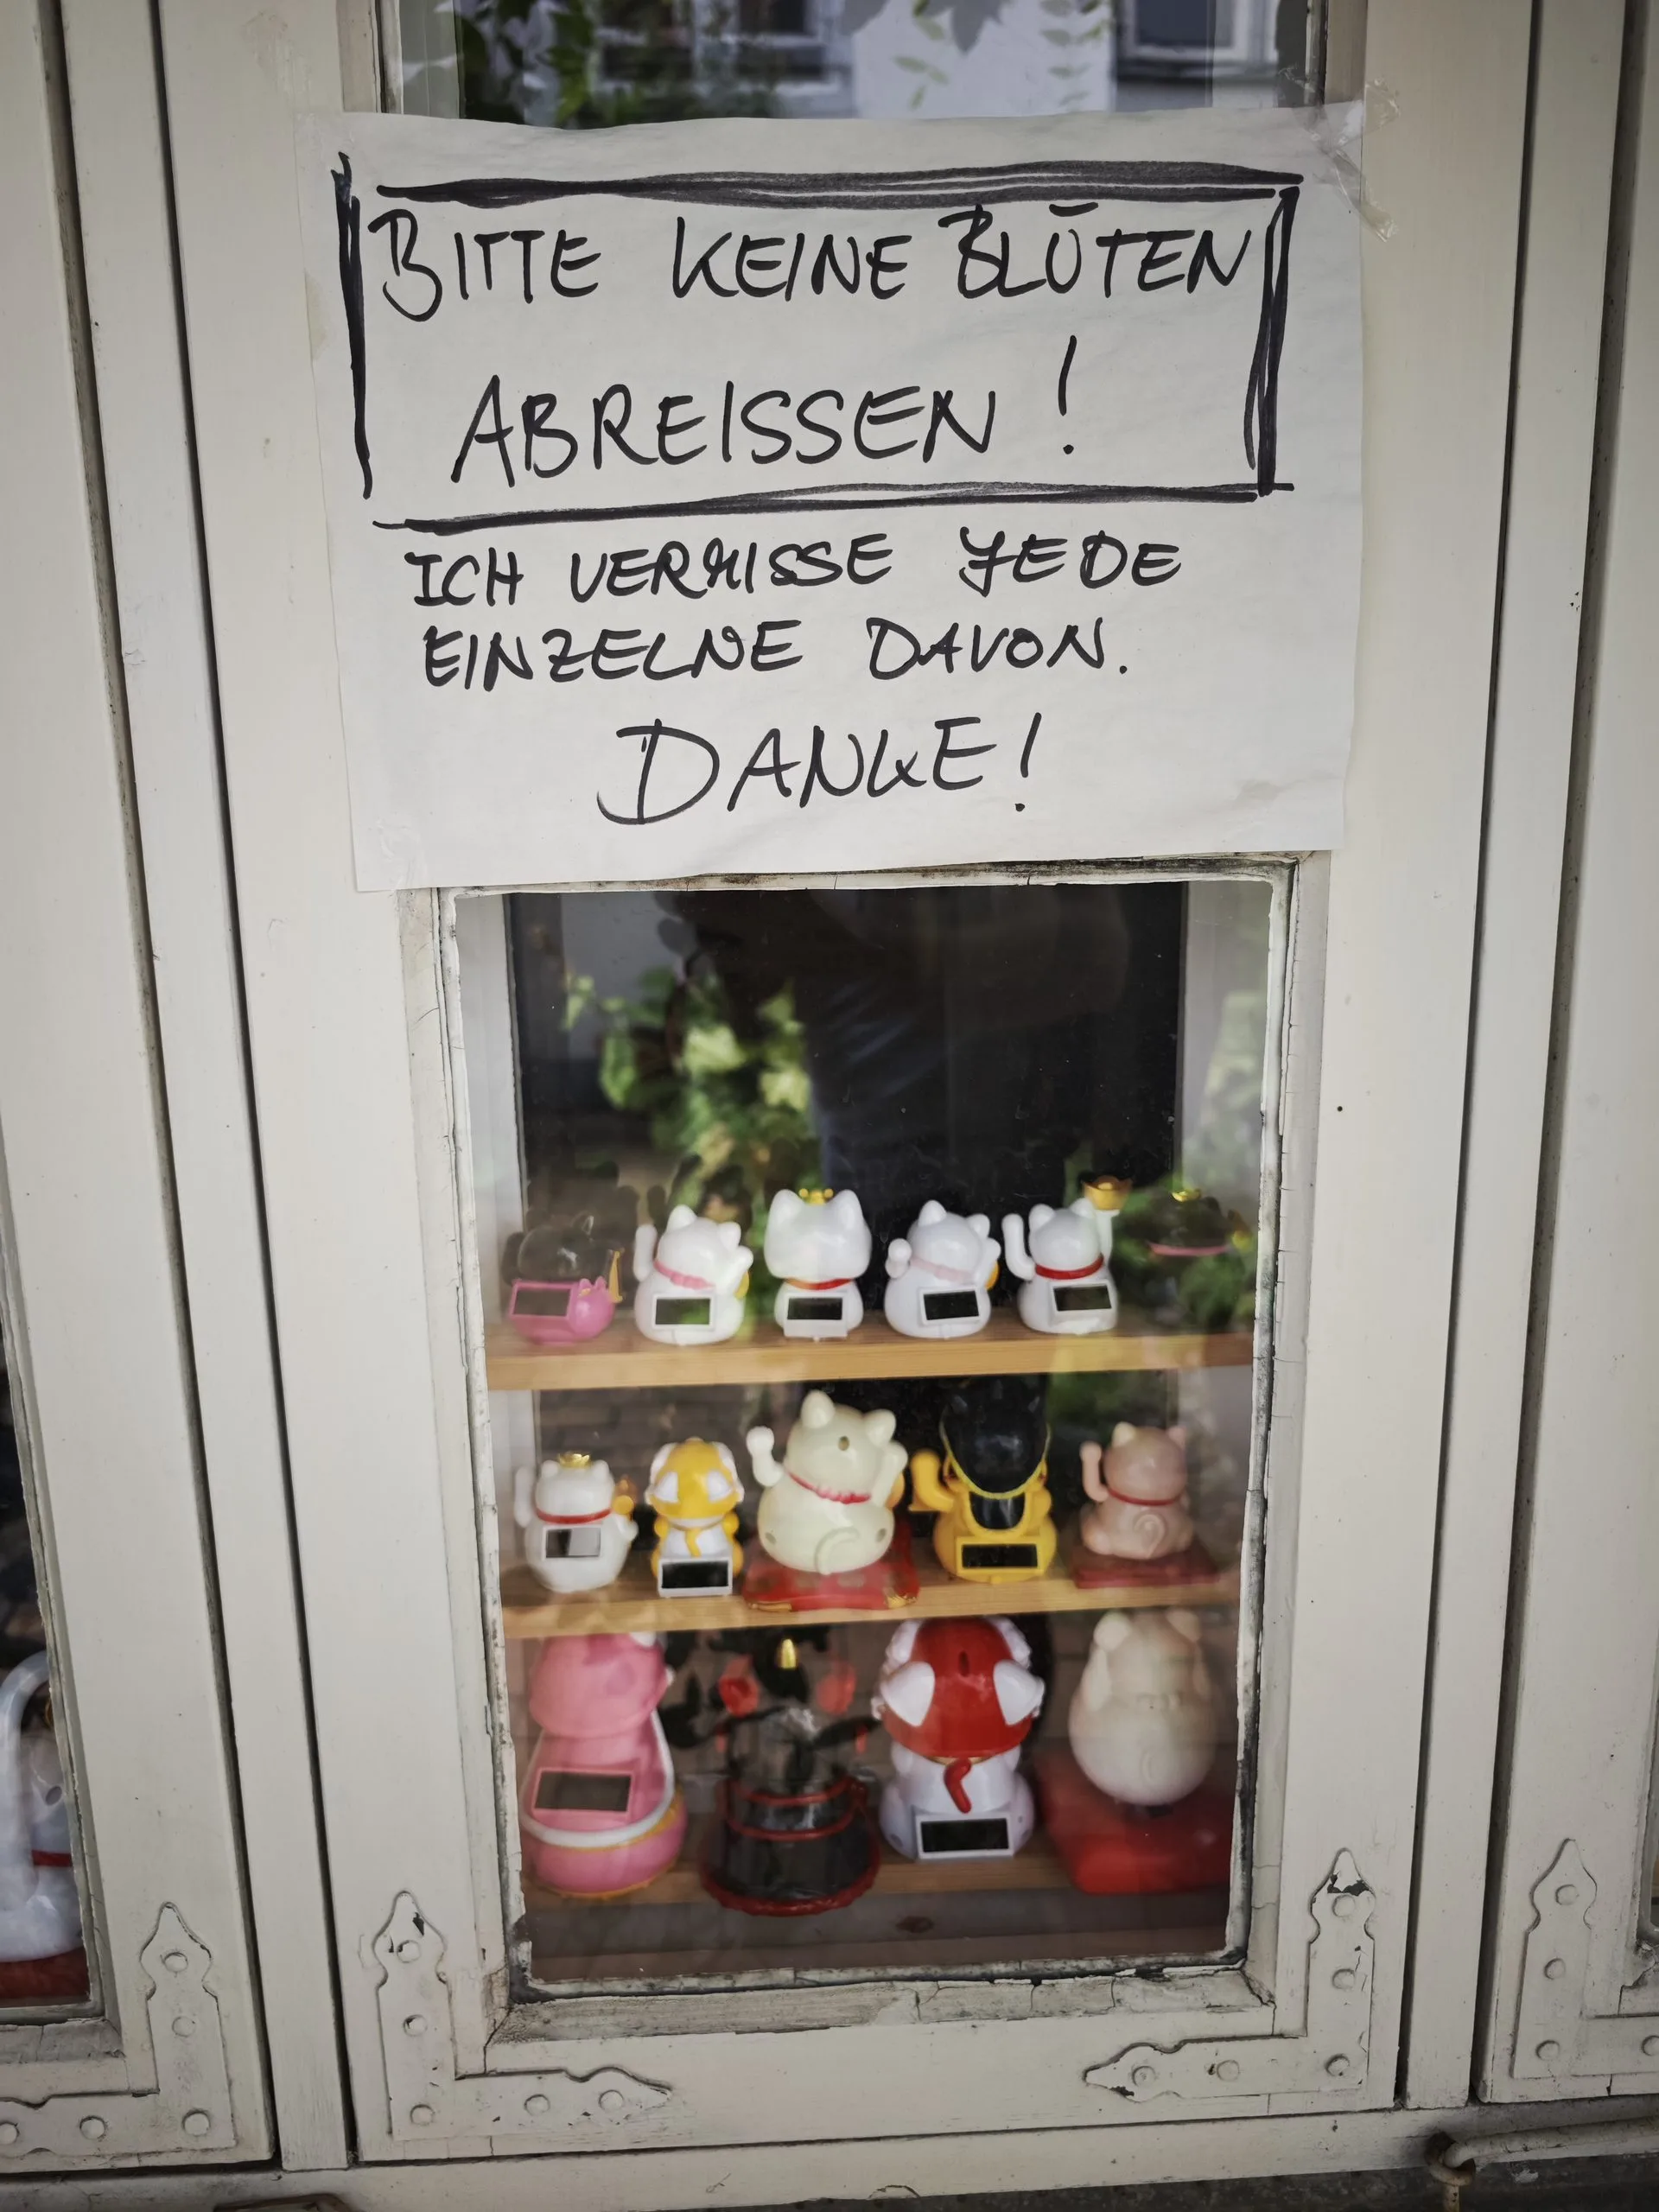 BITTE KEINE BLÜTEN
ABREISSEN!
ICH VERMISSE JEDE
EINZELNE DAVON.
DANKE!